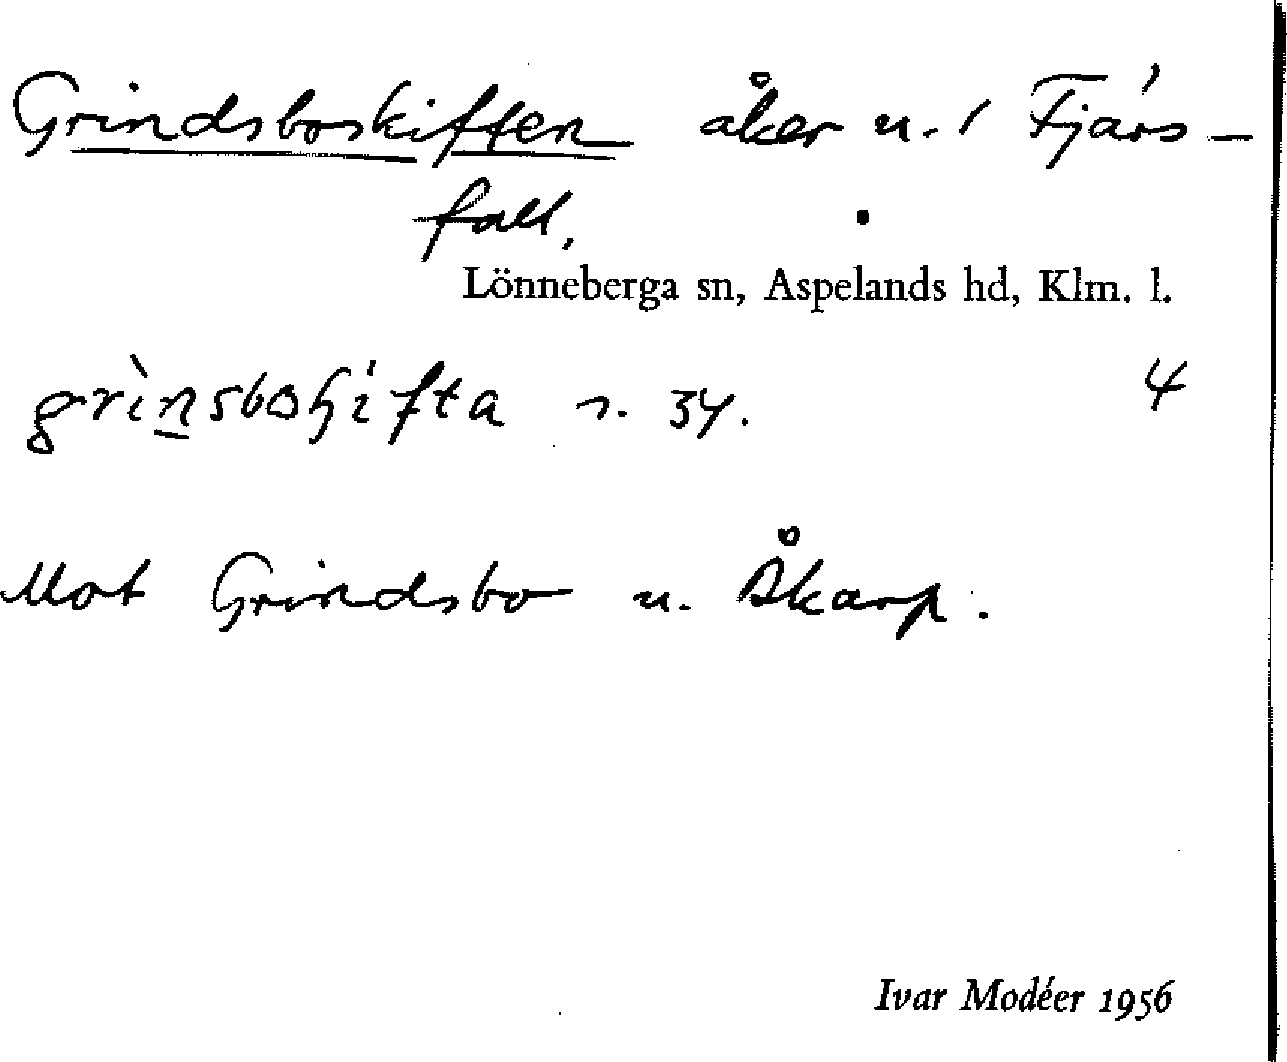 Grindsboskiften åker u. 1 Fjärs-
fall,
Lönneberga sn, Aspelands hd, Klm. l.
grìnsboʃifta s. 34. 4
Mot Grindsbo u. Åkarp.
Ivar Modéer 1956